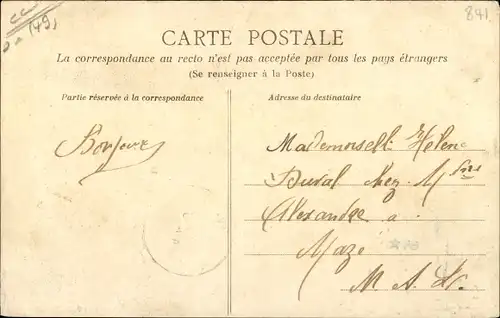 841.
CARTE POSTALE
La correspondance au recto n'est pas acceptée par tous les pays étrangers
(Se renseigner à la Poste)
Partie réservée à la correspondance
Adresse du destinataire
Bonjour
Mademoiselle Hélène
Duval chez Mme
Alexandre a
Mazé
M. & L.